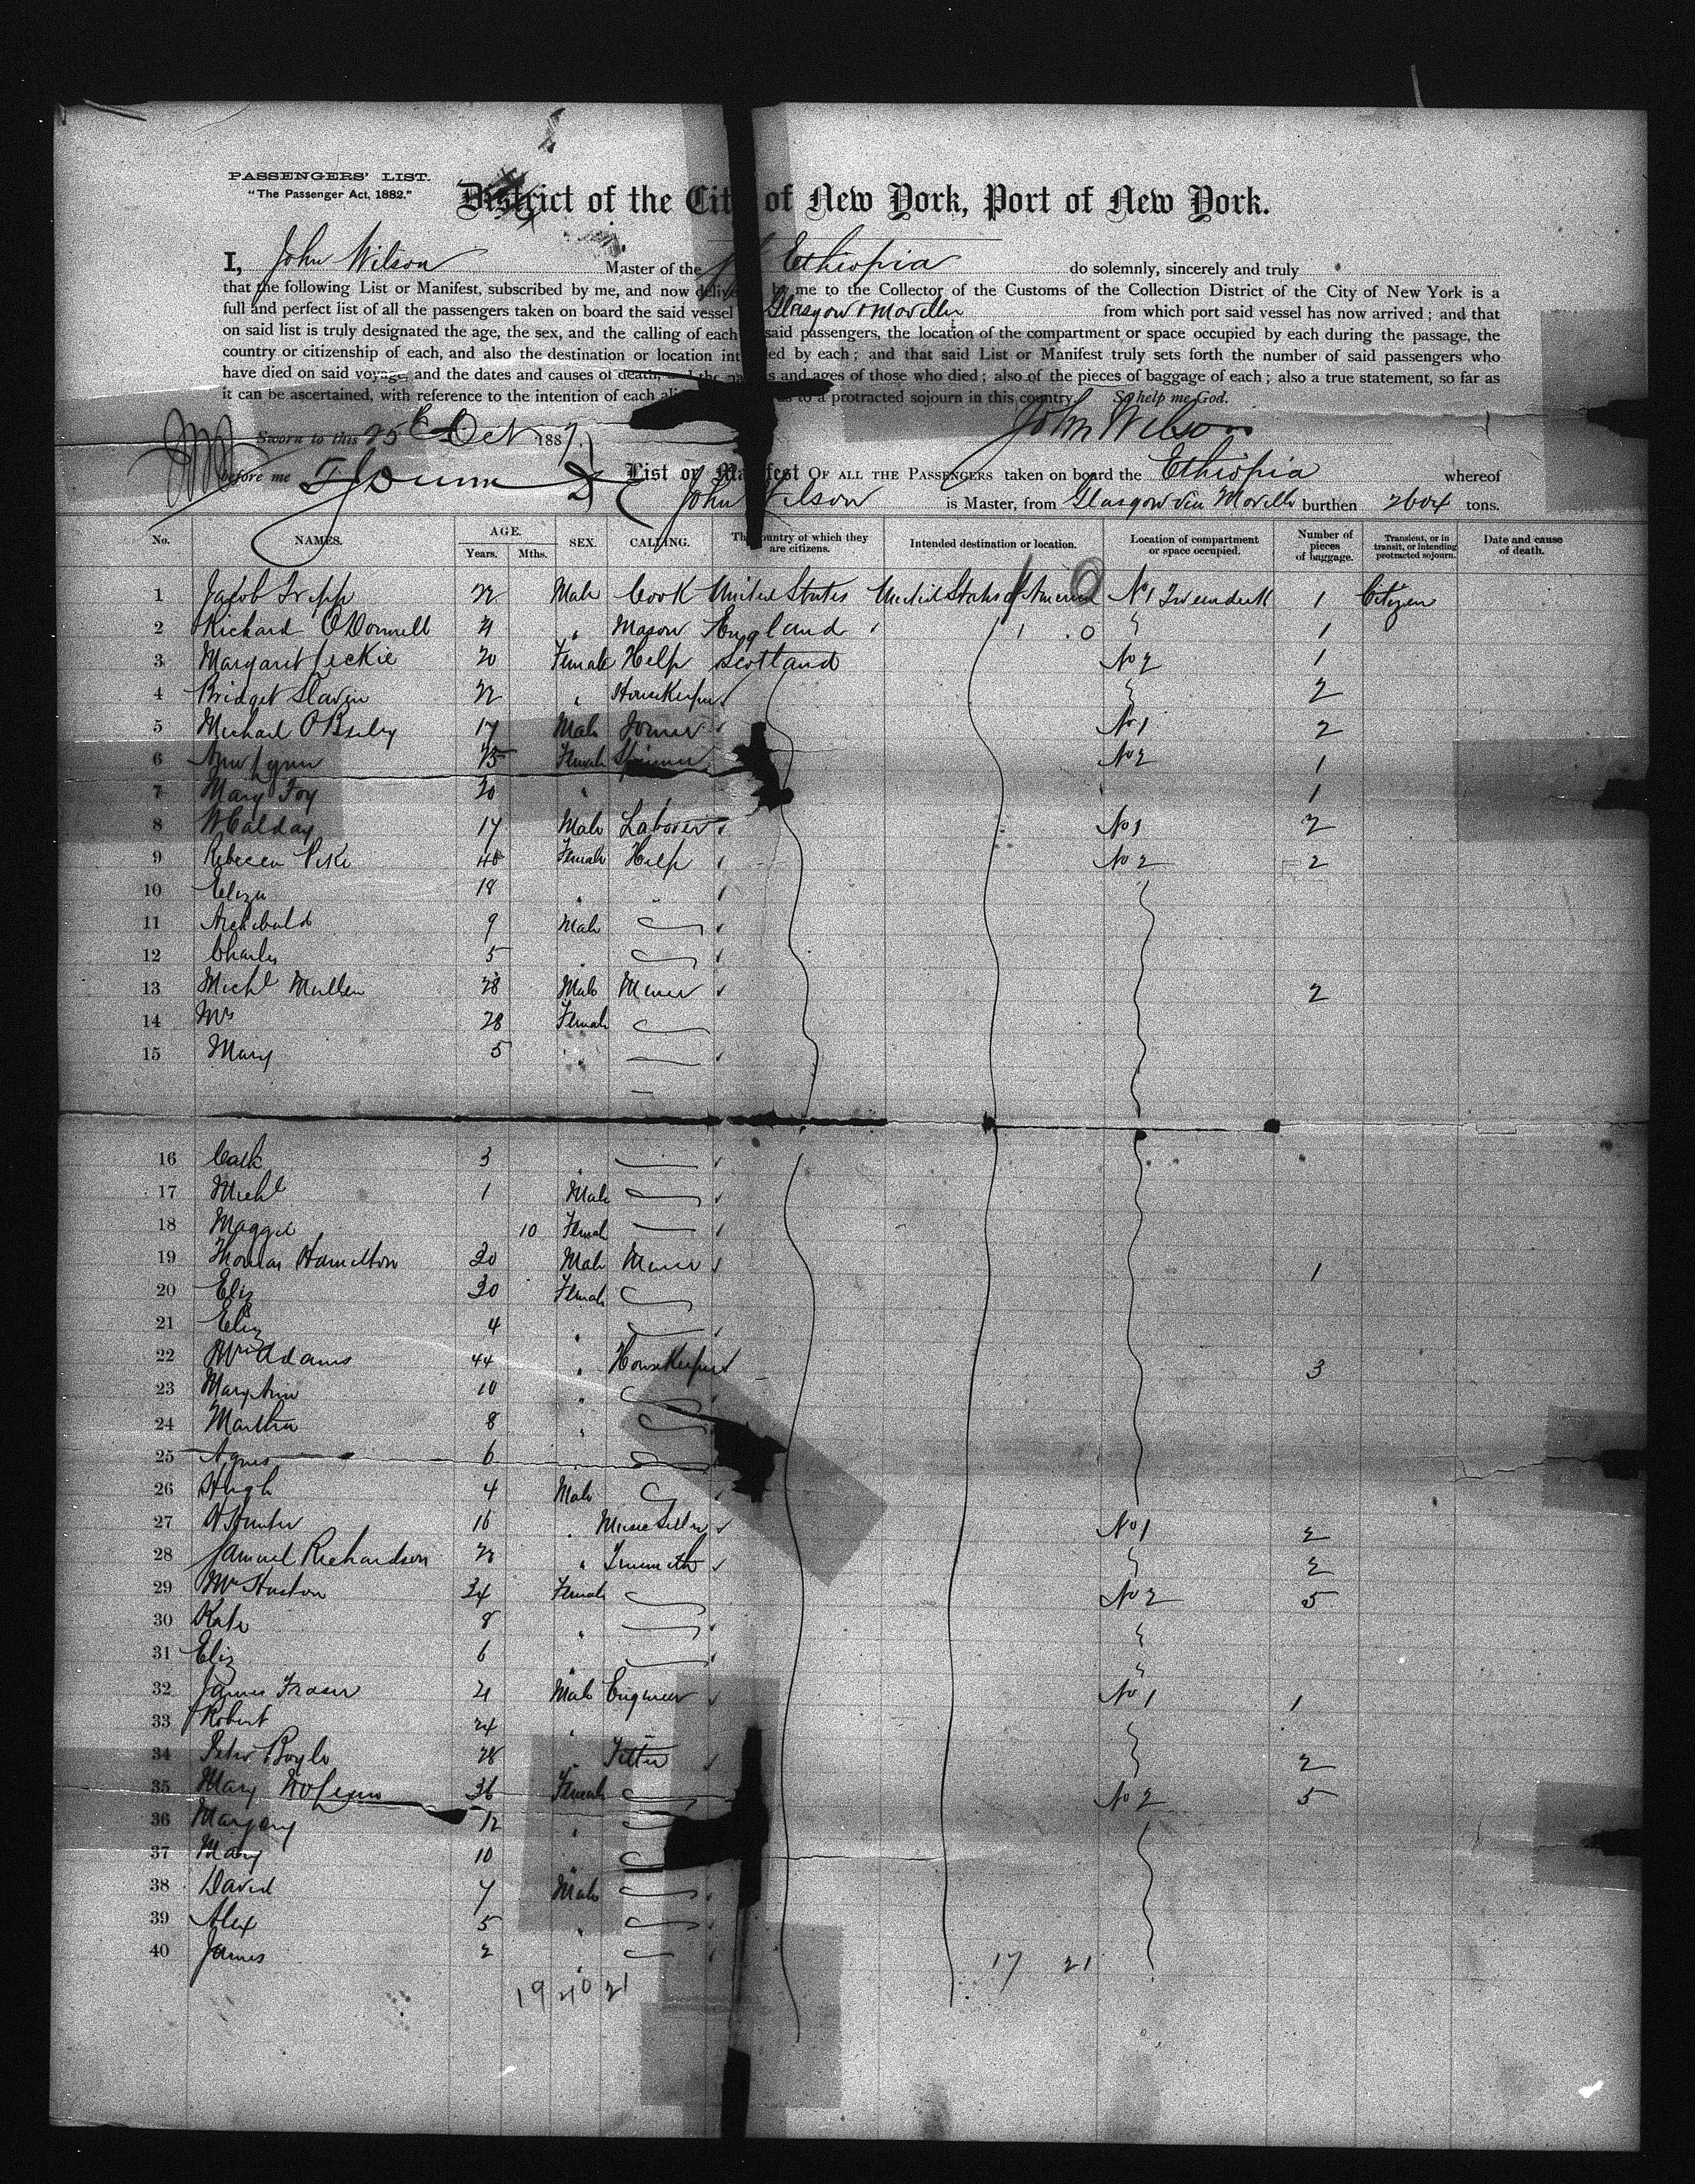 PASSENGERS' LIST.
"The Passenger Act, 1882."
District of the City of New York, Port of New York.
I, John Wilson Master of the Ethiopia do solemnly, sincerely and truly
that the following List or Manifest, subscribed by me, and now delive by me to the Collector of the Customs of the Collection District of the City of New York is a
full and perfect list of all the passengers taken on board the said vessel Glasgow & Moville from which port said vessel has now arrived; and that
on said list is truly designated the age, the sex, and the calling of each said passengers, the location of the compartment or space occupied by each during the passage, the
country or citizenship of each, and also the destination or location int ed by each; and that said List or Manifest truly sets forth the number of said passengers who
have died on said voyage, and the dates and causes of death, and the na s and ages of those who died; also of the pieces of baggage of each; also a true statement, so far as
it can be ascertained, with reference to the intention of each ali to a protracted sojourn in this country. So help me God.
Sworn to this 25 Oct 1887. John Wilson
before me List or Manifest OF ALL THE PASSENGERS taken on board the Ethiopia whereof
John Wilson is Master, from Glasgow via Moville burthen 2604 tons.
No. NAMES. AGE. Years. Mths. SEX. CALLING. The country of which they are citizens. Intended destination or location. Location of compartment or space occupied. Number of pieces of baggage. Transient, or in transit, or intending protracted sojourn. Date and cause of death.
1 Jacob Tripp 22 Male Cook United States United States of America No 1 Tweendeck 1 Citizen
2 Richard O'Donnell 21 " Mason England 1
3 Margaret Jeckie 20 Female Help Scotland No 2 1
4 Bridget Slaven 22 " Housekeeper 2
5 Michael 17 Male Joiner No 1 2
6 Lynn 25 Female Spinner No 2 1
7 Mary Foy 20 " 1
8 17 Male Laborer No 1 2
9 Rebecca Pike 40 Female Help No 2 2
10 Eliza 18 "
11 Archibald 9 Male
12 Charles 5
13 Michl Mullen 28 Male Miner 2
14 Mrs 28 Female
15 Mary 5 "
16 Cath 3 "
17 Michl 1 Male
18 Maggie 10 Female
19 Thomas Hamilton 30 Male Miner 1
20 Eliz 30 Female
21 Eliz 4 "
22 Mrs Adams 44 " Housekeeper 3
23 Mary Ann 10 "
24 Martha 8 "
25 Agnes 6
26 Hugh 4 Male
27 Hunter 16 " Music Seller No 1 2
28 Samuel Richardson 28 " Tinsmith 2
29 Mrs Huston 34 Female No 2 5
30 Kate 8 "
31 Eliz 6 "
32 James Fraser 21 Male Engineer No 1 1
33 Robert 24 "
34 Peter Boyle 28 " Fitter 2
35 Mary 36 Female No 2 5
36 Margery 12 "
37 Mary 10 "
38 David 7 Male
39 Alex 5 "
40 James 2 "
17 21
19 40 21